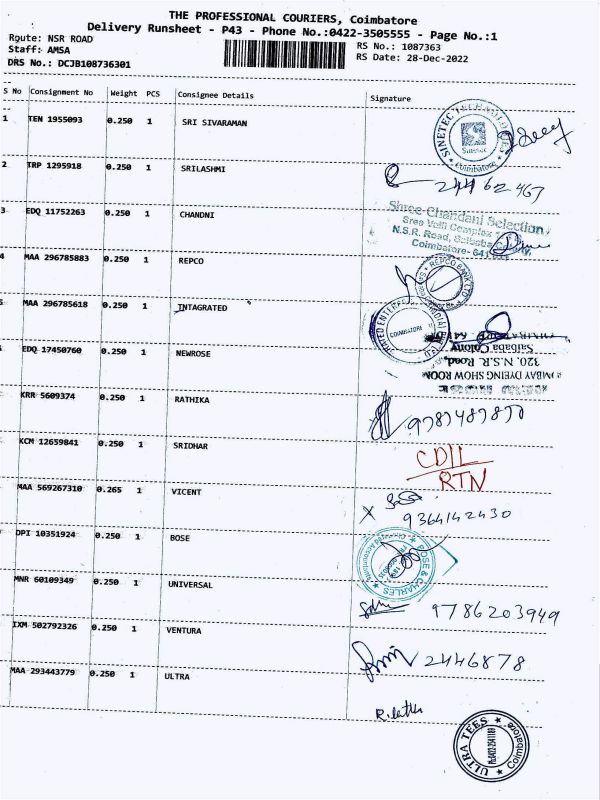 THE PROFESSIONAL COURIERS, Coimbatore
Delivery Runsheet - P43 - Phone No.:0422-3505555 - Page No.:1
Route: NSR ROAD
RS No.: 1087363
Staff: AMSA
RS Date: 28-Dec-2022
DRS No.: DCJB108736301
S No Consignment No Weight PCS Consignee Details Signature
1 TEN 1955093 0.250 1 SRI SIVARAMAN
SINETEC TECHNOLOGIES
Coimbatore
2 TRP 1295918 0.250 1 SRILASHMI
24462467
3 EDQ 11752263 0.250 1 CHANDNI
Shree Chandani Selection
Sree Valli Complex
N.S.R. Road, Saibaba Colony,
Coimbatore- 641
4 MAA 296785883 0.250 1 REPCO
REPCO BANK LTD
MAA 296785618 0.250 1 INTAGRATED
COIMBATORE
EDQ 17450760 0.250 1 NEWROSE
Saibaba Colony
320, N.S.R. Road,
BOMBAY DYEING SHOW ROOM
KRR 5609374 0.250 1 RATHIKA
KCM 12659841 0.250 1 SRIDHAR
CDIL
RTN
MAA 569267310 0.265 1 VICENT
X
9364142430
OPI 10351924 0.250 1 BOSE
BOSE & CHARLES
Chartered Accountants
MNR 60109349 0.250 1 UNIVERSAL
9786203949
IXM 502792326 0.250 1 VENTURA
2446878
MAA 293443779 0.250 1 ULTRA
ULTRA TEES
Coimbatore